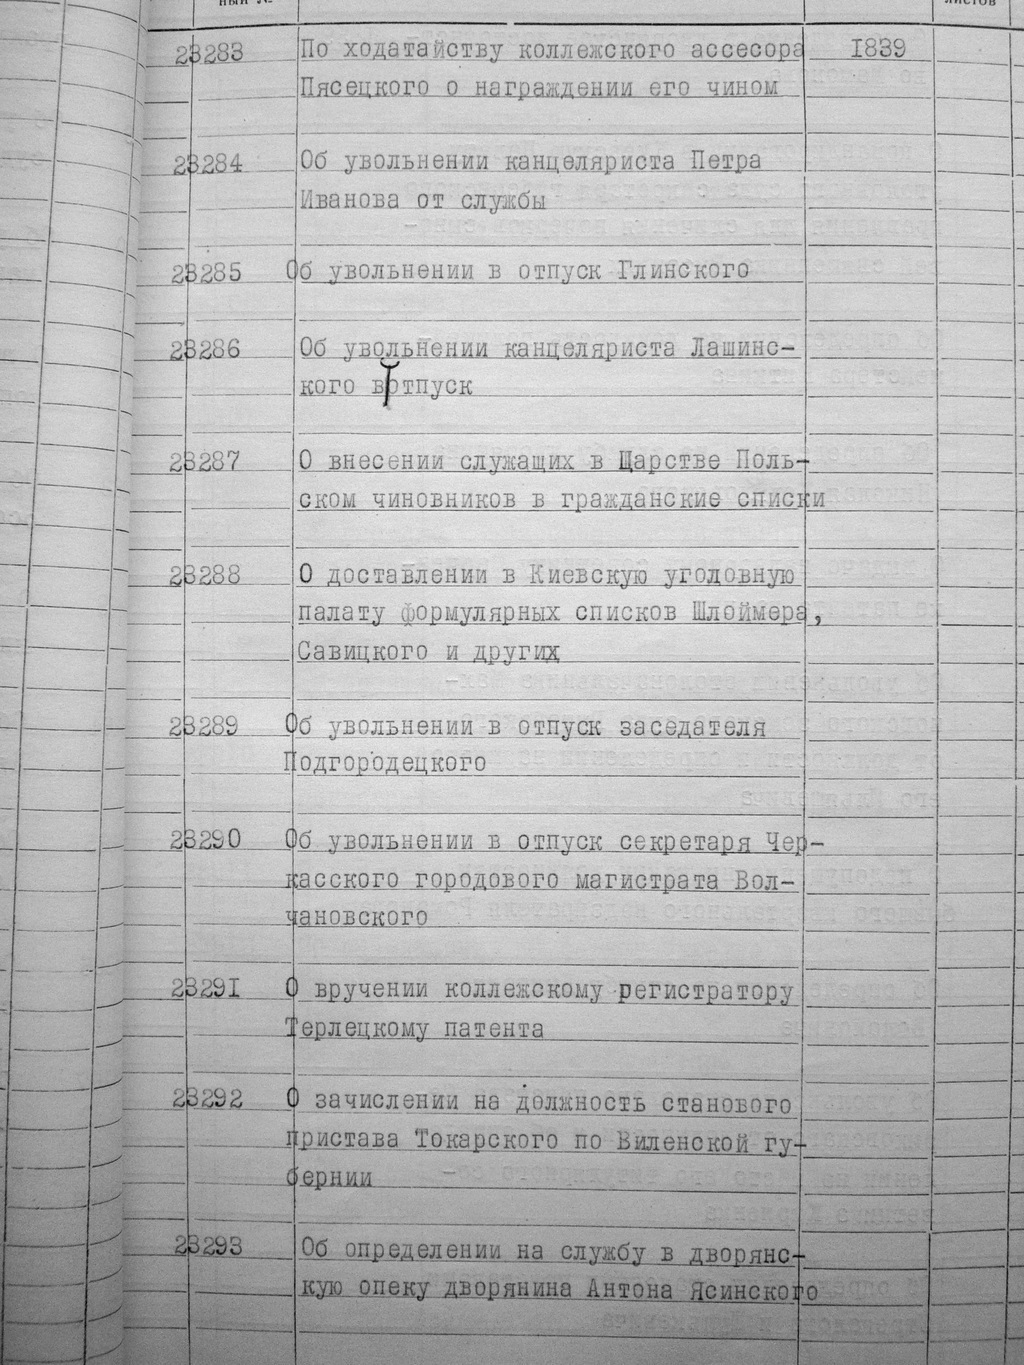 ный №
листов
23283 По ходатайству коллежского ассесора 1839
Пясецкого о награждении его чином
23284 Об увольнении канцеляриста Петра
Иванова от службы
23285 Об увольнении в отпуск Глинского
23286 Об увольнении канцеляриста Лашинс-
кого вотпуск
23287 О внесении служащих в Царстве Поль-
ском чиновников в гражданские списки
23288 О доставлении в Киевскую уголовную
палату формулярных списков Шлоймера,
Савицкого и других
23289 Об увольнении в отпуск заседателя
Подгородецкого
23290 Об увольнении в отпуск секретаря Чер-
касского городового магистрата Вол-
чановского
23291 О вручении коллежскому регистратору
Терлецкому патента
23292 О зачислении на должность станового
пристава Токарского по Виленской гу-
бернии
23293 Об определении на службу в дворянс-
кую опеку дворянина Антона Ясинского